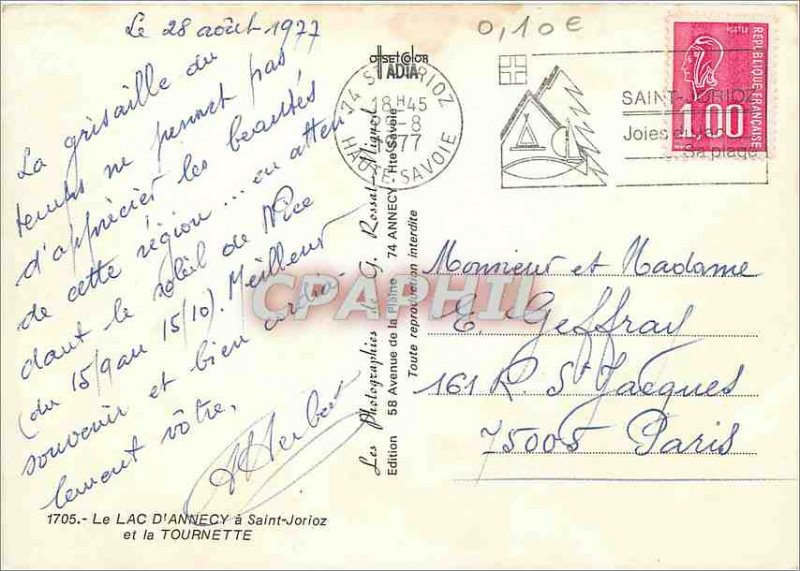 Le 28 août 1977
La grisaille du
temps ne permet pas
d'apprécier les beautés
de cette région... en atten
dant le soleil de Nice
(du 15/9 au 15/10). Meilleur
souvenir et bien cordia-
lement vôtre,
AHerbert
1705.- Le LAC D'ANNECY à Saint-Jorioz
et la TOURNETTE
offsetcolor
IADIA
Les Photographies de G. Rossat-Mignod
Edition 58 Avenue de la Plaine 74 ANNECY Hte Savoie
Toute reproduction interdite
0,10€
74 ST JORIOZ
18H45
29-8
1977
HAUTE SAVOIE
SAINT-JORIOZ
Joies du lac
Sa plage
POSTES
1,00
REPUBLIQUE FRANCAISE
Monsieur et Madame
E. Geffray
161 R. St Jacques
75005 Paris
CPAPHIL